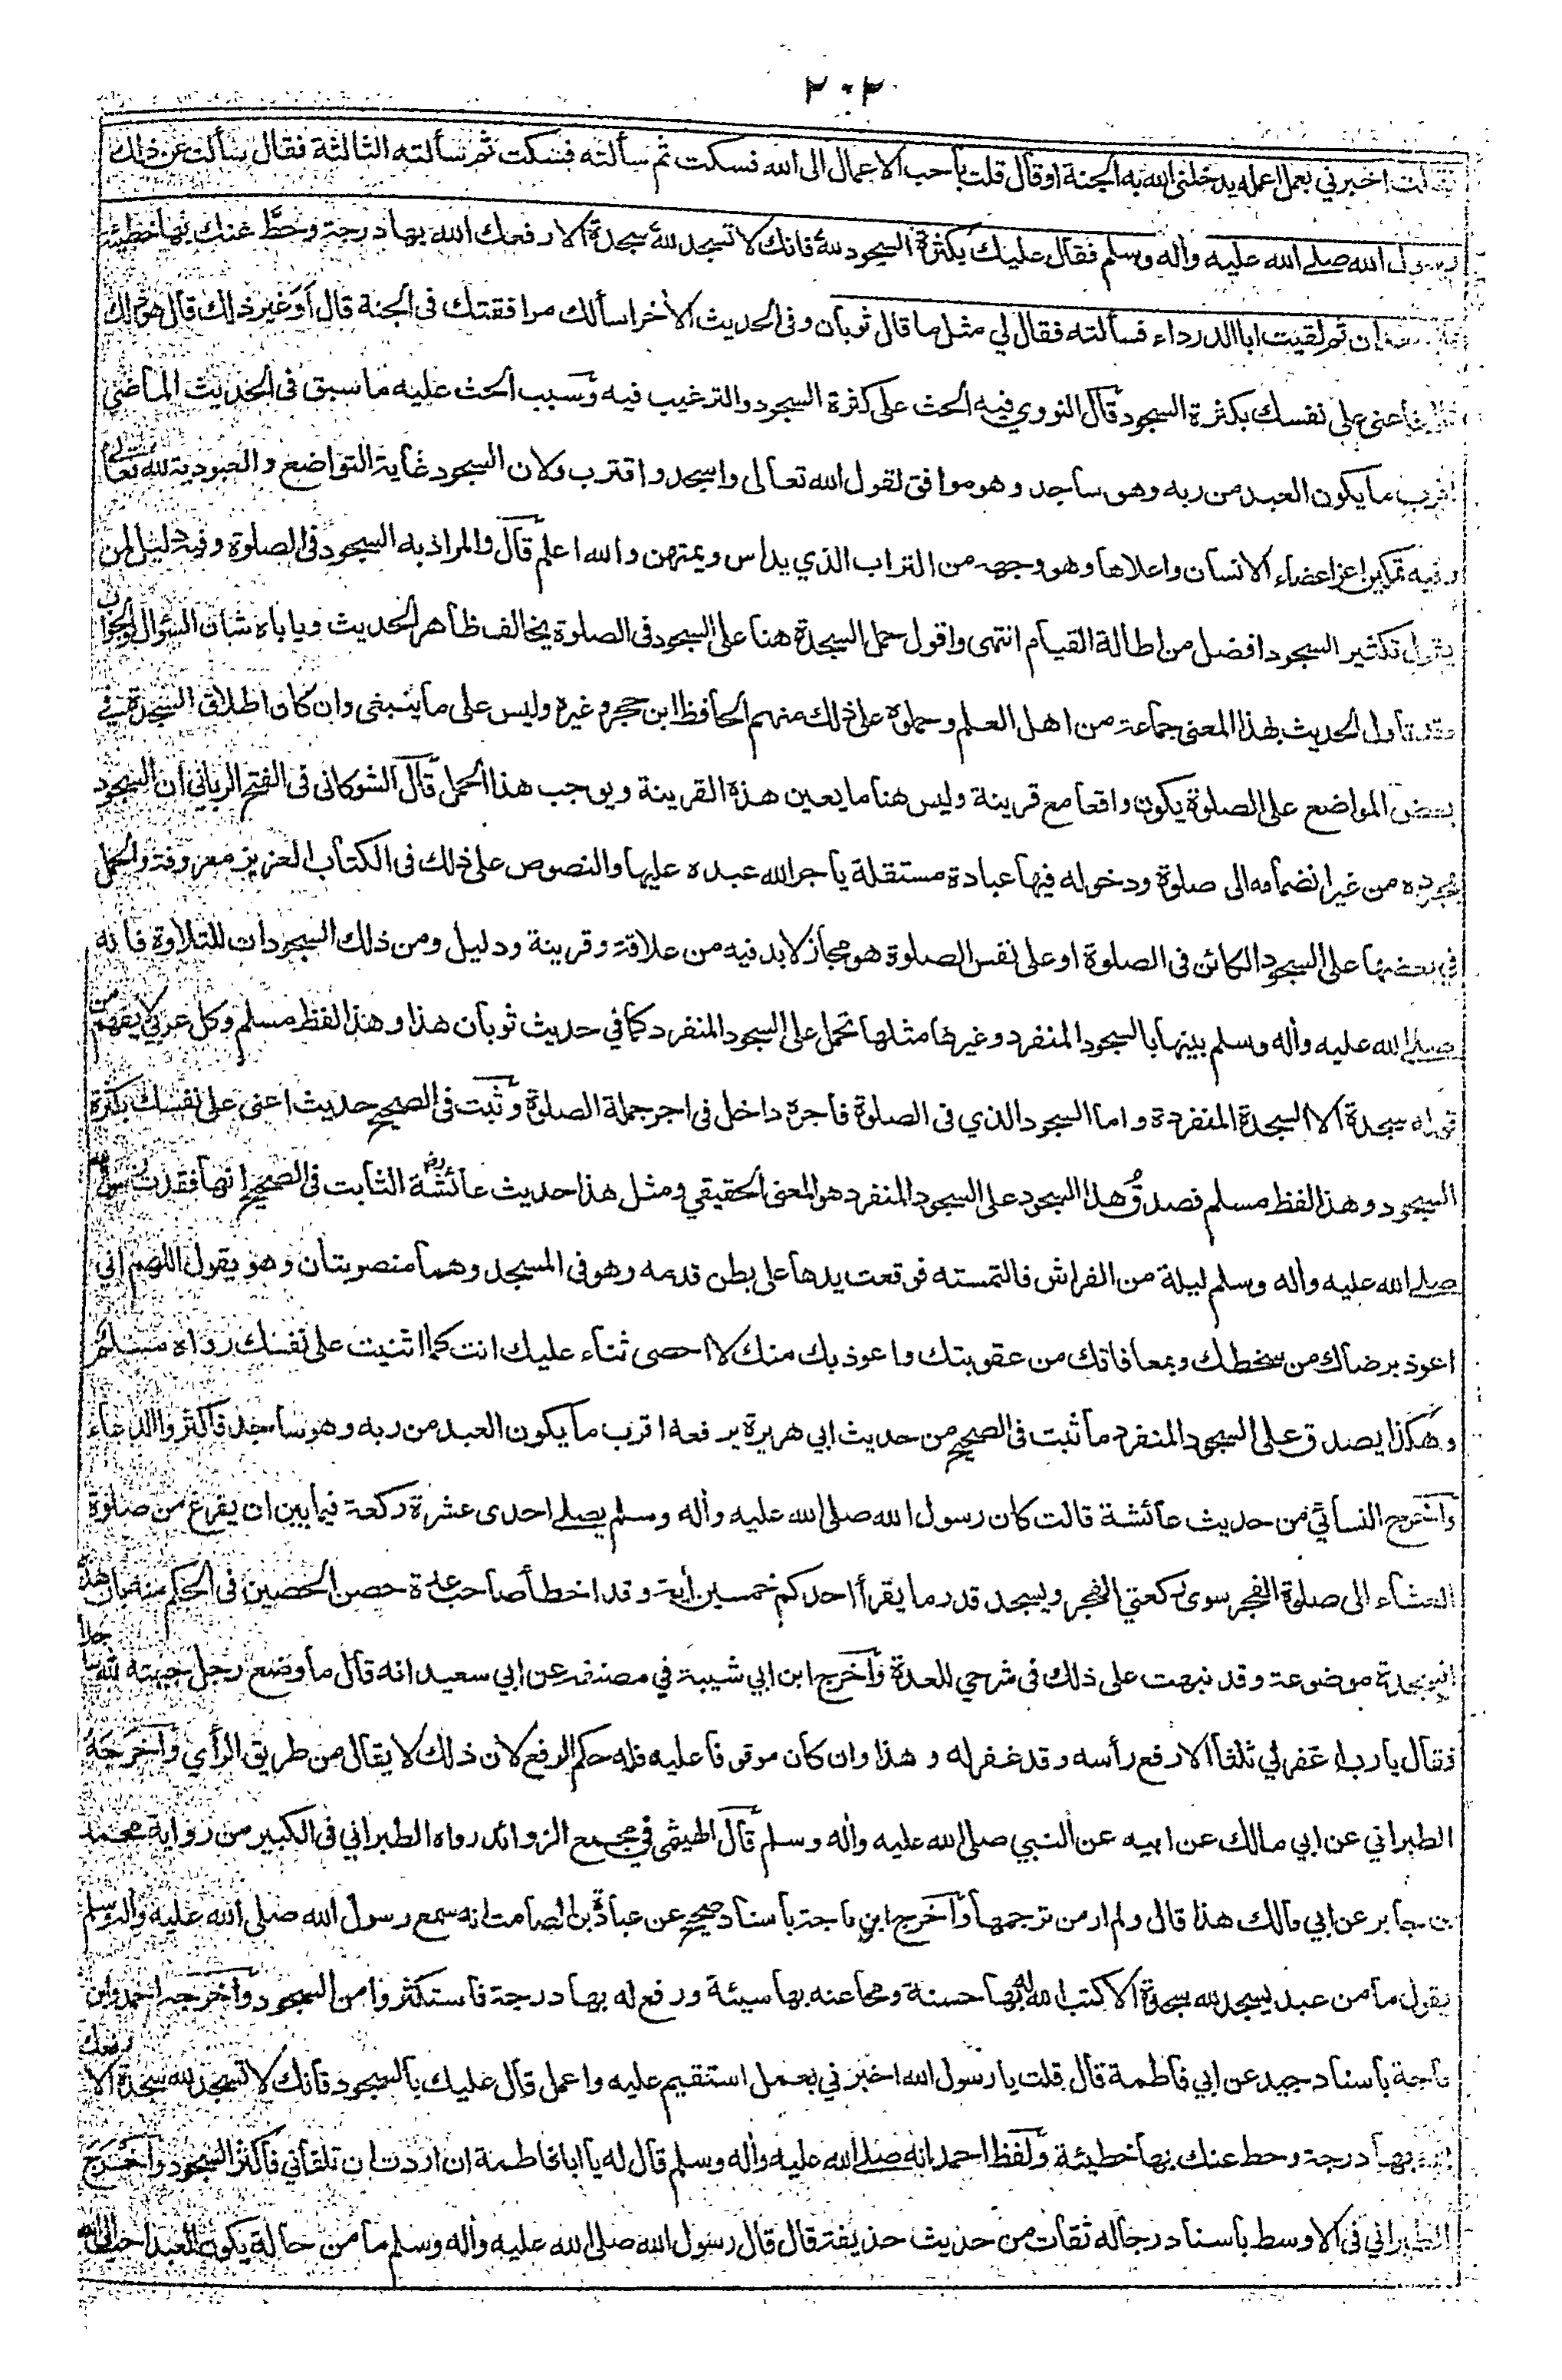 ٢٠٣
فقلت اخبرني بعمل اعمله يدخلني الله به الجنة او قال قلت بأحب الاعمال الى الله فسكت ثم سألته فسكت ثم سألته الثالثة فقال سألت عن ذلك
رسول الله صلے الله عليه واٰله وسلم فقال عليك بكثرة السجود لله فانك لا تسجد لله سجدة الا رفعك الله بها درجة وحطّ عنك بها خطيئة
ثم لقيت ابا الدرداء فسألته فقال لي مثل ما قال ثوبان وفى الحديث الأخر اسألك مرافقتك فى الجنة قال أوَغير ذلك قال هو ذاك
اعني على نفسك بكثرة السجود قال النووي فيه الحث على كثرة السجود والترغيب فيه وسبب الحث عليه ما سبق فى الحديث الماضي
اقرب ما يكون العبد من ربه وهو ساجد وهو موافق لقول الله تعالى واسجد واقترب ولان السجود غاية التواضع والعبودية لله تعالى
وفيه تمكين اعز اعضاء الانسان واعلاها وهو وجهه من التراب الذي يداس ويمتهن والله اعلم قال والمراد به السجود فى الصلوة وفيه دليل لمن
يقول تكثير السجود افضل من اطالة القيام انتهى واقول حمل السجدة هنا على السجود فى الصلوة يخالف ظاهر الحديث وياباه شان السؤال والجواب
وقد تأول الحديث بهذا المعنى جماعة من اهل العلم وحملوه على ذلك منهم الحافظ ابن حجر وغيره وليس على ما ينبغى وان كان اطلاق السجدة في
بعض المواضع على الصلوة يكون واقعا مع قرينة وليس هنا ما يعين هذه القرينة ويوجب هذا الحمل قال الشوكانى فى الفتح الرباني ان السجود
بمجرده من غير انضمامه الى صلوة ودخوله فيها عبادة مستقلة يأجر الله عبده عليها والنصوص على ذلك فى الكتاب العزيز معروفة والحمل
في بعضها على السجود الكائن فى الصلوة او على نفس الصلوة هو مجاز لا بد فيه من علاقة وقرينة ودليل ومن ذلك السجودات للتلاوة فانه
صلے الله عليه واٰله وسلم بينها بالسجود المنفرد وغيرها مثلها تحمل على السجود المنفرد كما في حديث ثوبان هذا وهذا لفظ مسلم وكل عربي لا يفهم من
قوله سجدة الا السجدة المنفردة واما السجود الذي فى الصلوة فاجره داخل فى اجر جملة الصلوة وثبت فى الصحيح حديث اعنى على نفسك بكثرة
السجود وهذا لفظ مسلم فصدقُ هذا السجود على السجود المنفرد هو المعنى الحقيقي ومثل هذا حديث عائشة رض الثابت فى الصحيح انها فقدت رسول الله
صلے الله عليه واٰله وسلم ليلة من الفراش فالتمسته فوقعت يدها على بطن قدمه وهو فى المسجد وهما منصوبتان وهو يقول اللهم اني
اعوذ برضاك من سخطك وبمعافاتك من عقوبتك واعوذ بك منك لا احصى ثناء عليك انت كما اثنيت على نفسك رواه مسلم
وهكذا يصدق على السجود المنفرد ما ثبت فى الصحيح من حديث ابي هريرة يرفعه اقرب ما يكون العبد من ربه وهو ساجد فاكثروا الدعاء
واخرج النسائي من حديث عائشة قالت كان رسول الله صلى الله عليه واٰله وسلم يصلے احدى عشرة ركعة فيما بين ان يفرغ من صلوة
العشاء الى صلوة الفجر سوى ركعتي الفجر ويسجد قدر ما يقرأ احدكم خمسين اٰية وقد اخطأ صاحب عدة حصن الحصين فى الحكم منه بان هذه
السجدة موضوعة وقد نبهت على ذلك فى شرحي للعدة واخرج ابن ابي شيبة في مصنفه عن ابي سعيد انه قال ما وضع رجل جبهته لله ساجدا
فقال يا رب اغفر لي ثلثا الا رفع رأسه وقد غفر له وهذا وان كان موقوفا عليه فله حكم الرفع لان ذلك لا يقال من طريق الرأي واخرجه
الطبراني عن ابي مالك عن ابيه عن النبي صلى الله عليه واٰله وسلم قال الهيثمى في مجمع الزوائد رواه الطبراني فى الكبير من رواية محمد
بن جابر عن ابي مالك هذا قال ولم ار من ترجمها واخرج ابن ماجة بأسناد صحيح عن عبادة بن الصامت انه سمع رسول الله صلى الله عليه واٰله وسلم
يقول ما من عبد يسجد لله سجدة الا كتب الله له بها حسنة ومحا عنه بها سيئة ورفع له بها درجة فاستكثروا من السجود واخرجه احمد وابن
ماجة بأسناد جيد عن ابي فاطمة قال قلت يا رسول الله اخبرني بعمل استقيم عليه واعمل قال عليك بالسجود فانك لا تسجد لله سجدة الا رفعك
الله بها درجة وحط عنك بها خطيئة ولفظ احمد انه صلے الله عليه واٰله وسلم قال له يا ابا فاطمة ان اردت ان تلقاني فاكثر السجود واخرج
الطبراني فى الاوسط بأسناد رجاله ثقات من حديث حذيفة قال قال رسول الله صلى الله عليه واٰله وسلم ما من حالة يكون العبد احب الى الله